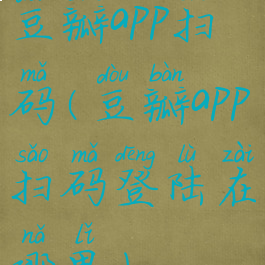 豆瓣app扫
mǎ dòu bàn
码(豆瓣app
sǎo mǎ dēng lù zài
扫码登陆在
nǎ lǐ
哪里)